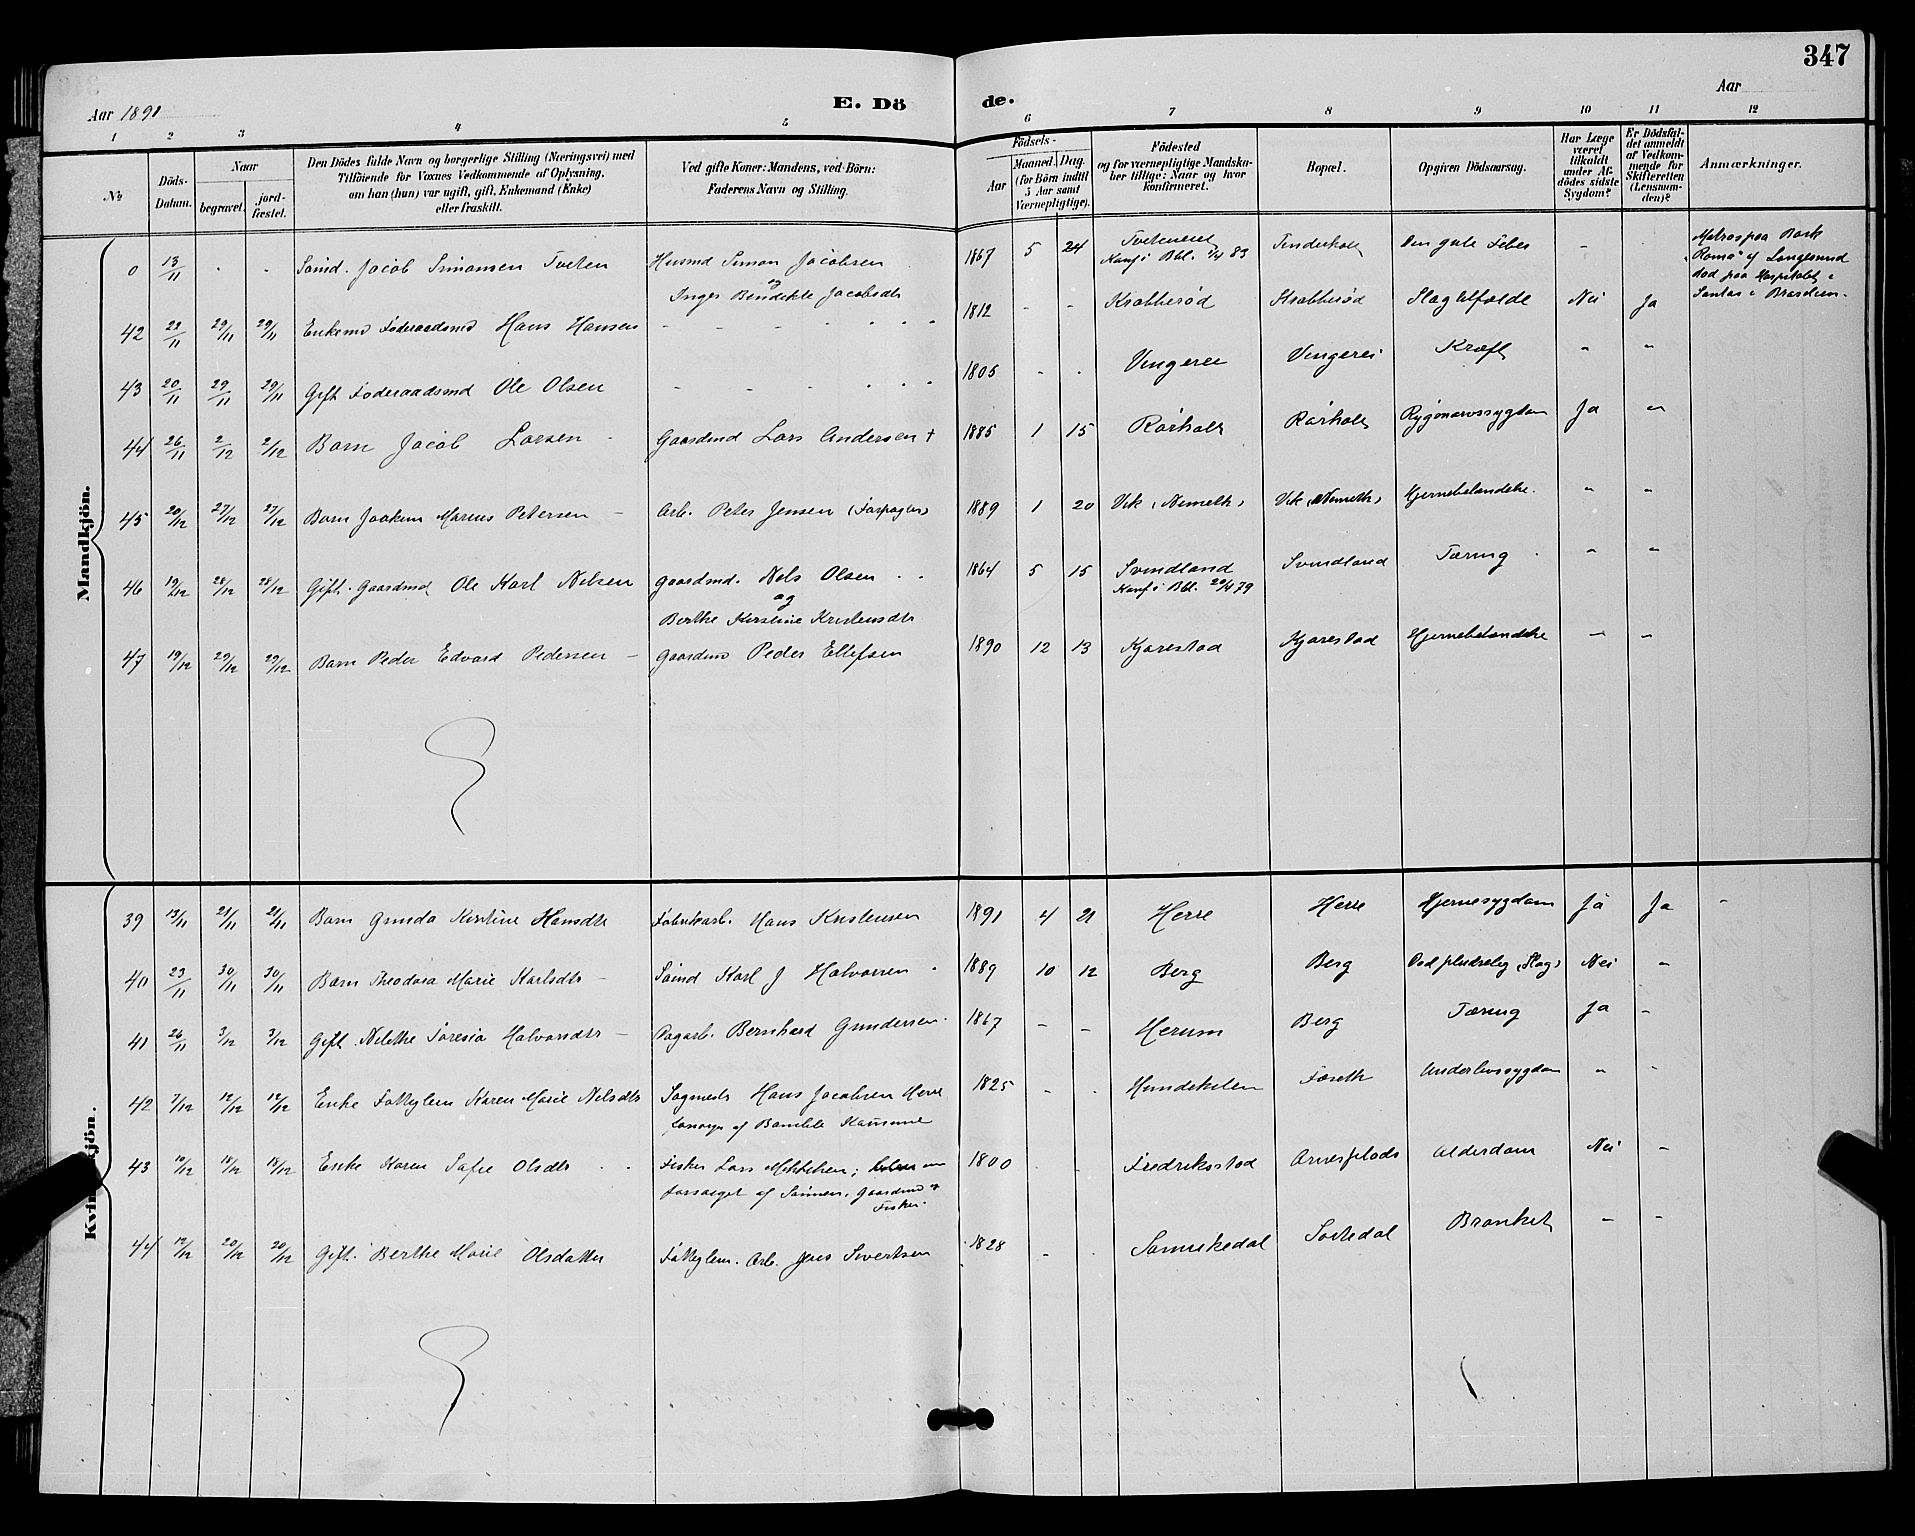 347
Aar 1891
E. Dö de.
Aar
1 2 3 4 5 6 7 8 9 10 11 12
№
Döds-Datum.
Naar
begravet.
jord-fæstet.
Den Dödes fulde Navn og borgerlige Stilling (Næringsvei) med
Tilföiende for Voxnes Vedkommende af Oplysning,
om han (hun) var ugift, gift, Enkemand (Enke)
eller fraskilt.
Ved gifte Koner: Mandens, ved Börn:
Faderens Navn og Stilling.
Födsels-
Aar
Maaned. Dag.
(for Börn indtil
5 Aar samt
Værnepligtige).
Födested
og for værnepligtige Mandska-
ber tillige: Naar og hvor
Konfirmeret.
Bopæl.
Opgiven Dödsaarsag.
Har Læge
været
tilkaldt
under Af-
dödes sidste
Sygdom?
Er Dödsfal-
det anmeldt
af Vedkom-
mende for
Skifteretten
(Lensman-
den)?
Anmærkninger.
Mandkjön.
0 13/11 Sømd. Jacob Simonsen Tveten Husmd Simon Jacobsen 1867 5 24 Tveteneiet Den gule Feber - Matros paa Bark
og Konf i Bbl. 1/4 83 "Roma" af Langesund
Inger Bendikte Jacobsdtr død paa Hospitalet i
Santos i Brasilien.
42 22/11 29/11 29/11 Enkemd Føderaadsmd Hans Hansen 1812 - - Krabberød Krabberød Slagtilfælde Nei Ja
43 20/11 29/11 29/11 Gift Føderaadsmd Ole Olsen 1805 - - Vingerei Vingerei Kræft " "
44 26/11 2/12 2/12 Barn Jacob Larsen Gaardmd Lars Andersen + 1885 1 15 Rørholt Rørholt Rygmarvssygdom Ja "
45 20/12 27/12 27/12 Barn Joakim Marius Petersen Arb. Peter Jensen 1889 1 20 Vik Vik Hjernebetændelse. " "
46 19/12 28/12 28/12 Gift. Gaardmd Ole Karl Nilsen Gaardmd. Nels Olsen 1864 5 15 Svindland Svindland Tæring " "
og Konf i Bbl. 20/4 79
Berthe Kirstine Kristensdtr
47 19/12 29/12 29/12 Barn Peder Edvard Pedersen Gaardmd Peder Ellefsen 1890 12 13 Kjørestad Kjørestad Hjernebetændelse " "
Kvi kjön.
39 13/11 21/11 21/11 Barn Gunda Kirstine Hansdtr Fabrikarb. Hans Kristensen 1891 4 21 Herre Herre Hjernesygdom Ja Ja
40 23/11 30/11 30/11 Barn Theodora Marie Karlsdtr Sømd Karl J Halvorsen 1889 10 12 Berg Berg Død pludselig (Slag) Nei "
41 26/11 3/12 3/12 Gift Nilethe Taresia Halvorsdtr Dagarb. Bernhard Gundersen 1867 - - Herum Berg Tæring Ja "
42 7/12 12/12 12/12 Enke Fattiglem Karen Marie Nilsdtr Sagmester Hans Jacobsen Herre 1825 - - Hundekilen Underlivssygdom " "
forsørges af Bamble Kommune
43 10/12 18/12 18/12 Enke Karen Sofie Olsdtr Fisker Lars Mikkelsen; 1800 - - Fredriksstad Alderdom Nei "
forsørget af Sønnen, Gaardmd &
Fisker.
44 12/12 20/12 20/12 Gift. Berthe Marie Olsdatter Fattiglem. Arb. Jens Sivertsen 1828 - - Sannikedal Sortedal Bronkit " "